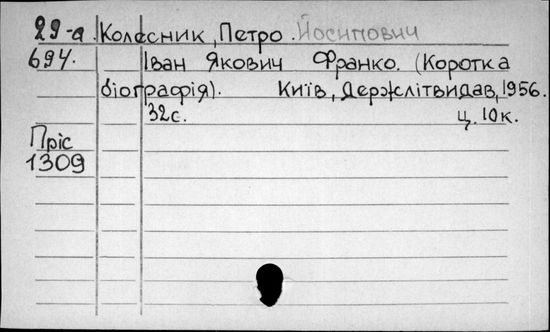 29-а Колесник, Петро Йосипович
694. Іван Якович Франко. (Коротка
біографія). Київ, Держлітвидав, 1956.
32с. ц. 10к.
Пріс
1309